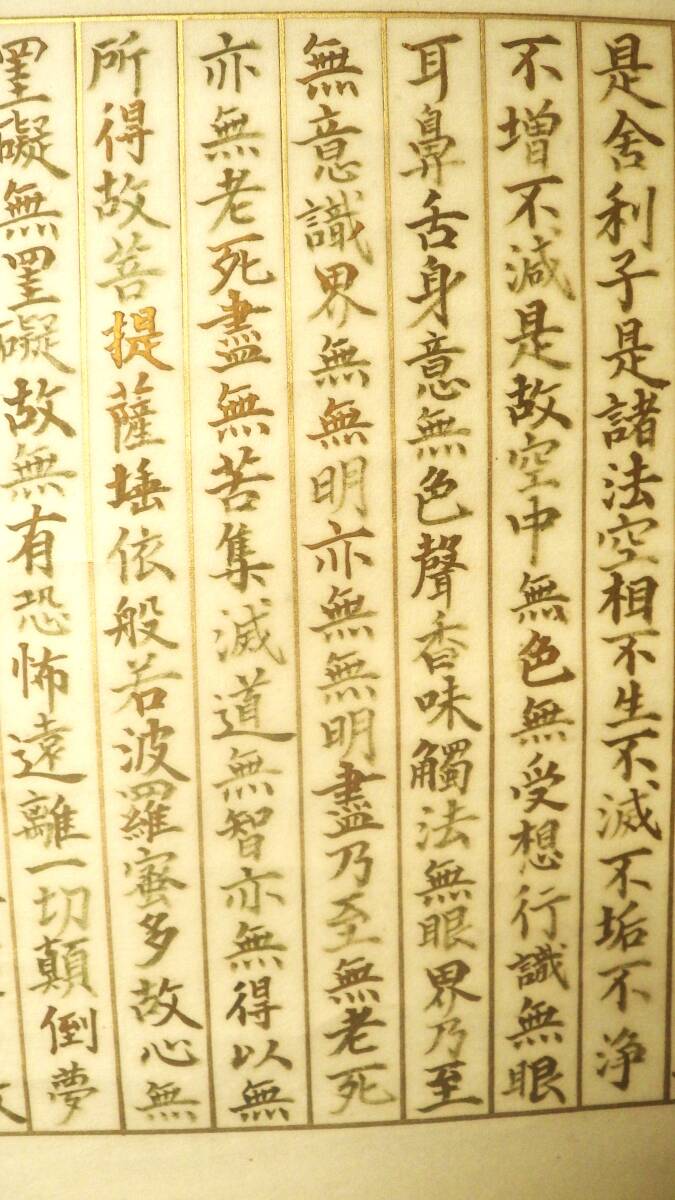 是舍利子是諸法空相不生不滅不垢不浄
不増不減是故空中無色無受想行識無眼
耳鼻舌身意無色聲香味觸法無眼界乃至
無意識界無無明亦無無明盡乃至無老死
亦無老死盡無苦集滅道無智亦無得以無
所得故菩提薩埵依般若波羅蜜多故心無
罣礙無罣礙故無有恐怖遠離一切顛倒夢